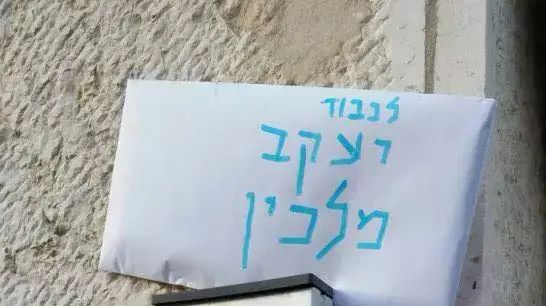 לכבוד
רצקב
מלכין